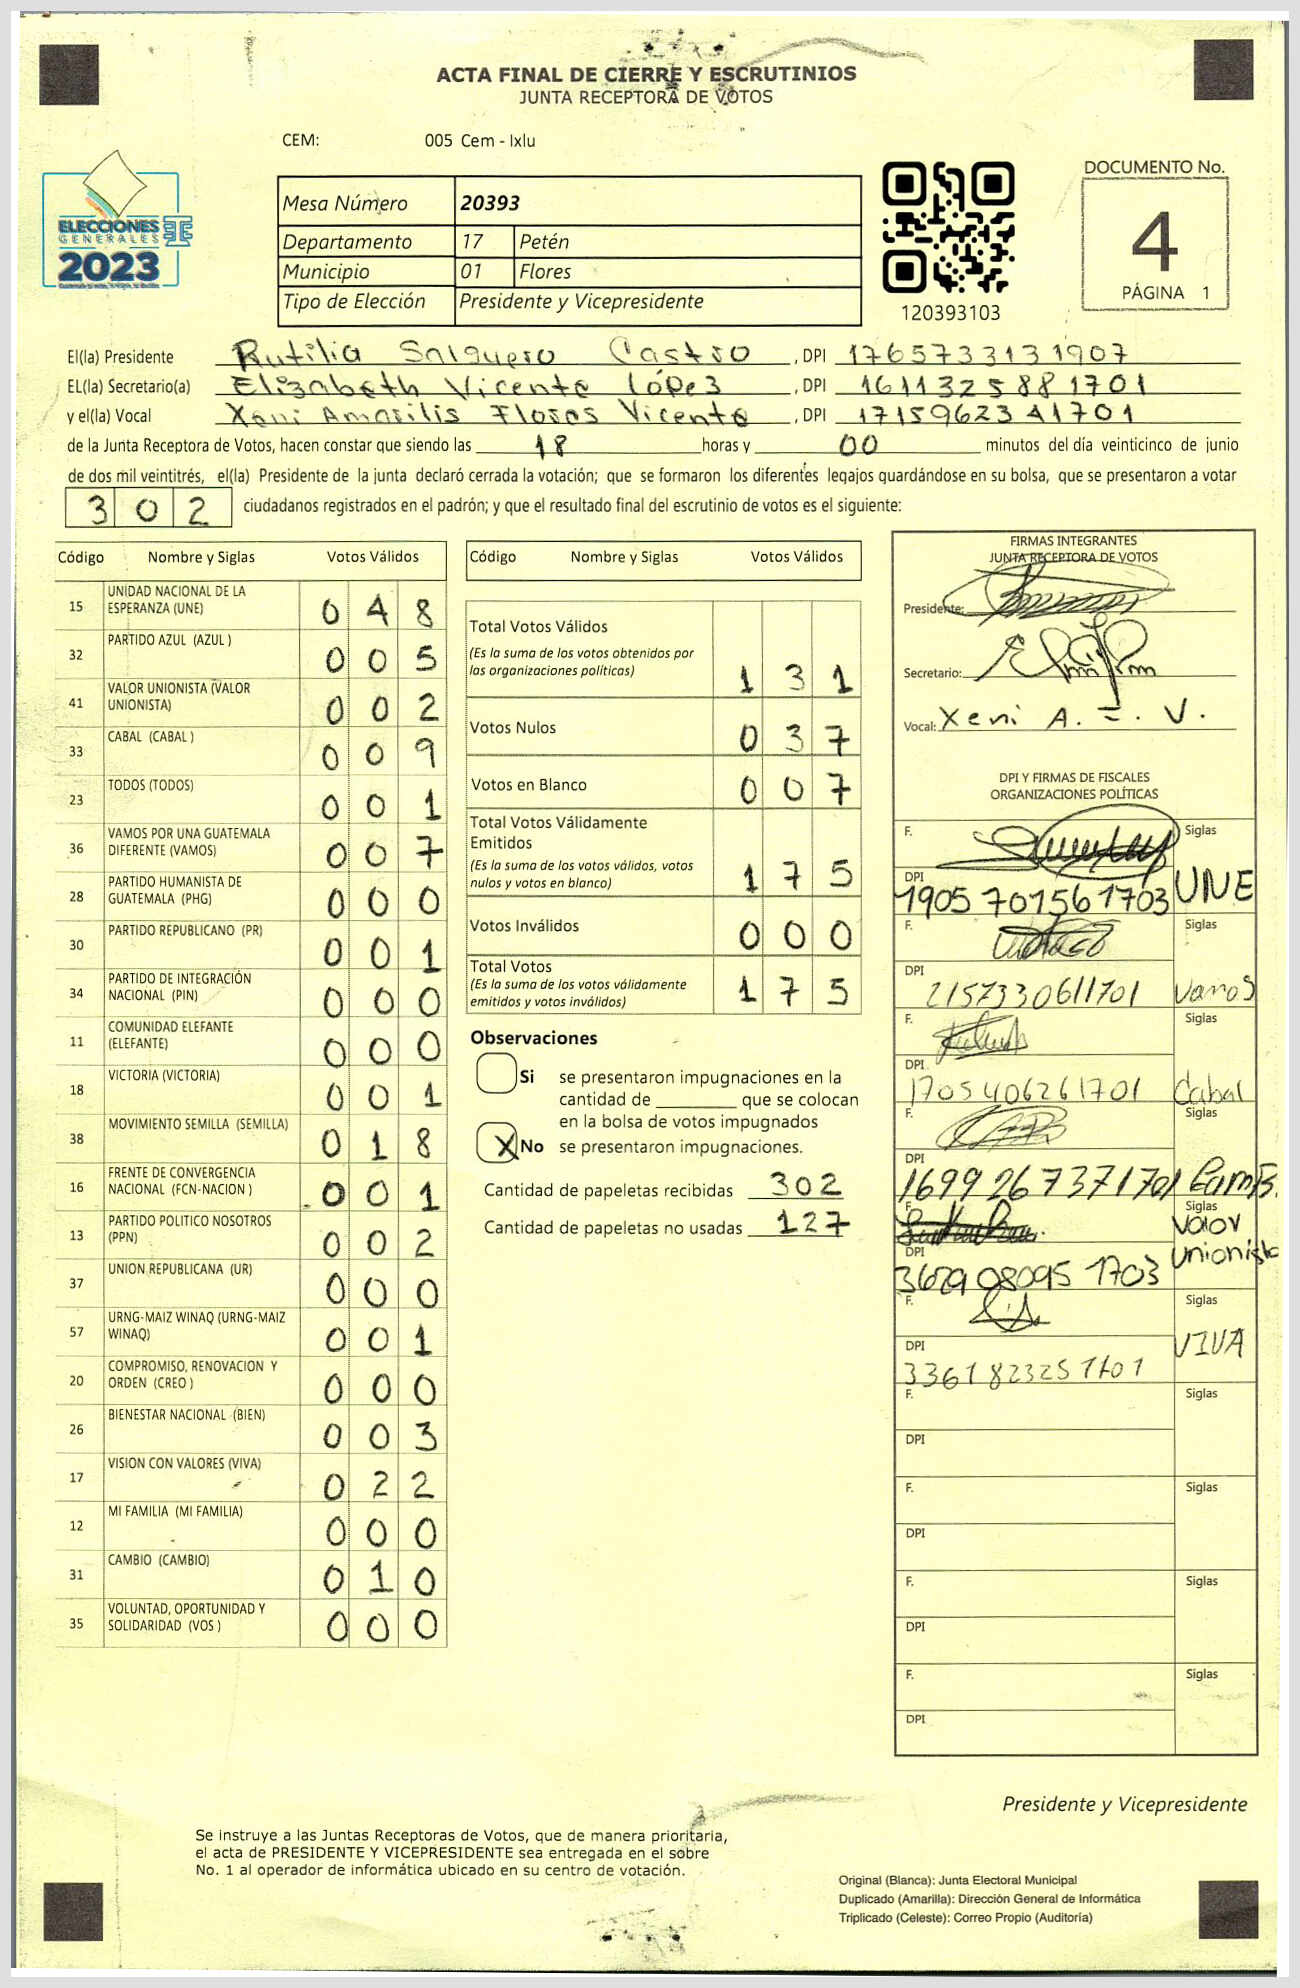 ACTA FINAL DE CIERRE Y ESCRUTINIOS
JUNTA RECEPTORA DE VOTOS
CEM: 005 Cem - Ixlu
ELECCIONES
GENERALES
2023
Mesa Número 20393
Departamento 17 Petén
Municipio 01 Flores
Tipo de Elección Presidente y Vicepresidente
120393103
DOCUMENTO No.
4
PÁGINA 1
El(la) Presidente Rutilia Salguero Castro , DPI 1765733131907
EL(la) Secretario(a) Elizabeth Vicente López , DPI 1611325881701
y el(la) Vocal Xeni Amarilis Flores Vicente , DPI 1715962341701
de la Junta Receptora de Votos, hacen constar que siendo las 18 horas y 00 minutos del día veinticinco de junio
de dos mil veintitrés, el(la) Presidente de la junta declaró cerrada la votación; que se formaron los diferentes legajos quardándose en su bolsa, que se presentaron a votar
302 ciudadanos registrados en el padrón; y que el resultado final del escrutinio de votos es el siguiente:
Código Nombre y Siglas Votos Válidos
15 UNIDAD NACIONAL DE LA ESPERANZA (UNE) 048
32 PARTIDO AZUL (AZUL ) 005
41 VALOR UNIONISTA (VALOR UNIONISTA) 002
33 CABAL (CABAL ) 009
23 TODOS (TODOS) 001
36 VAMOS POR UNA GUATEMALA DIFERENTE (VAMOS) 007
28 PARTIDO HUMANISTA DE GUATEMALA (PHG) 000
30 PARTIDO REPUBLICANO (PR) 001
34 PARTIDO DE INTEGRACIÓN NACIONAL (PIN) 000
11 COMUNIDAD ELEFANTE (ELEFANTE) 000
18 VICTORIA (VICTORIA) 001
38 MOVIMIENTO SEMILLA (SEMILLA) 018
16 FRENTE DE CONVERGENCIA NACIONAL (FCN-NACION ) 001
13 PARTIDO POLITICO NOSOTROS (PPN) 002
37 UNION REPUBLICANA (UR) 000
57 URNG-MAIZ WINAQ (URNG-MAIZ WINAQ) 001
20 COMPROMISO, RENOVACION Y ORDEN (CREO ) 000
26 BIENESTAR NACIONAL (BIEN) 003
17 VISION CON VALORES (VIVA) 022
12 MI FAMILIA (MI FAMILIA) 000
31 CAMBIO (CAMBIO) 010
35 VOLUNTAD, OPORTUNIDAD Y SOLIDARIDAD (VOS ) 000
Código Nombre y Siglas Votos Válidos
Total Votos Válidos
(Es la suma de los votos obtenidos por
las organizaciones políticas) 131
Votos Nulos 037
Votos en Blanco 007
Total Votos Válidamente
Emitidos
(Es la suma de los votos válidos, votos
nulos y votos en blanco) 175
Votos Inválidos 000
Total Votos
(Es la suma de los votos válidamente
emitidos y votos inválidos) 175
Observaciones
Si se presentaron impugnaciones en la
cantidad de ________ que se colocan
en la bolsa de votos impugnados
X No se presentaron impugnaciones.
Cantidad de papeletas recibidas 302
Cantidad de papeletas no usadas 127
FIRMAS INTEGRANTES
JUNTA RECEPTORA DE VOTOS
Presidente:
Secretario:
Vocal: Xeni A. F. V.
DPI Y FIRMAS DE FISCALES
ORGANIZACIONES POLÍTICAS
F. Siglas
DPI 1905701561703 UNE
F. Siglas
DPI 2157330611701 Vamos
F. Siglas
DPI 1705406261701 Cabal
F. Siglas
DPI 1699267371701
F. Siglas
Valor
Unionista
DPI 3629080951703
F. Siglas
DPI 3361823251701 VIVA
F. Siglas
DPI
F. Siglas
DPI
F. Siglas
DPI
F. Siglas
DPI
Presidente y Vicepresidente
Se instruye a las Juntas Receptoras de Votos, que de manera prioritaria,
el acta de PRESIDENTE Y VICEPRESIDENTE sea entregada en el sobre
No. 1 al operador de informática ubicado en su centro de votación.
Original (Blanca): Junta Electoral Municipal
Duplicado (Amarilla): Dirección General de Informática
Triplicado (Celeste): Correo Propio (Auditoría)